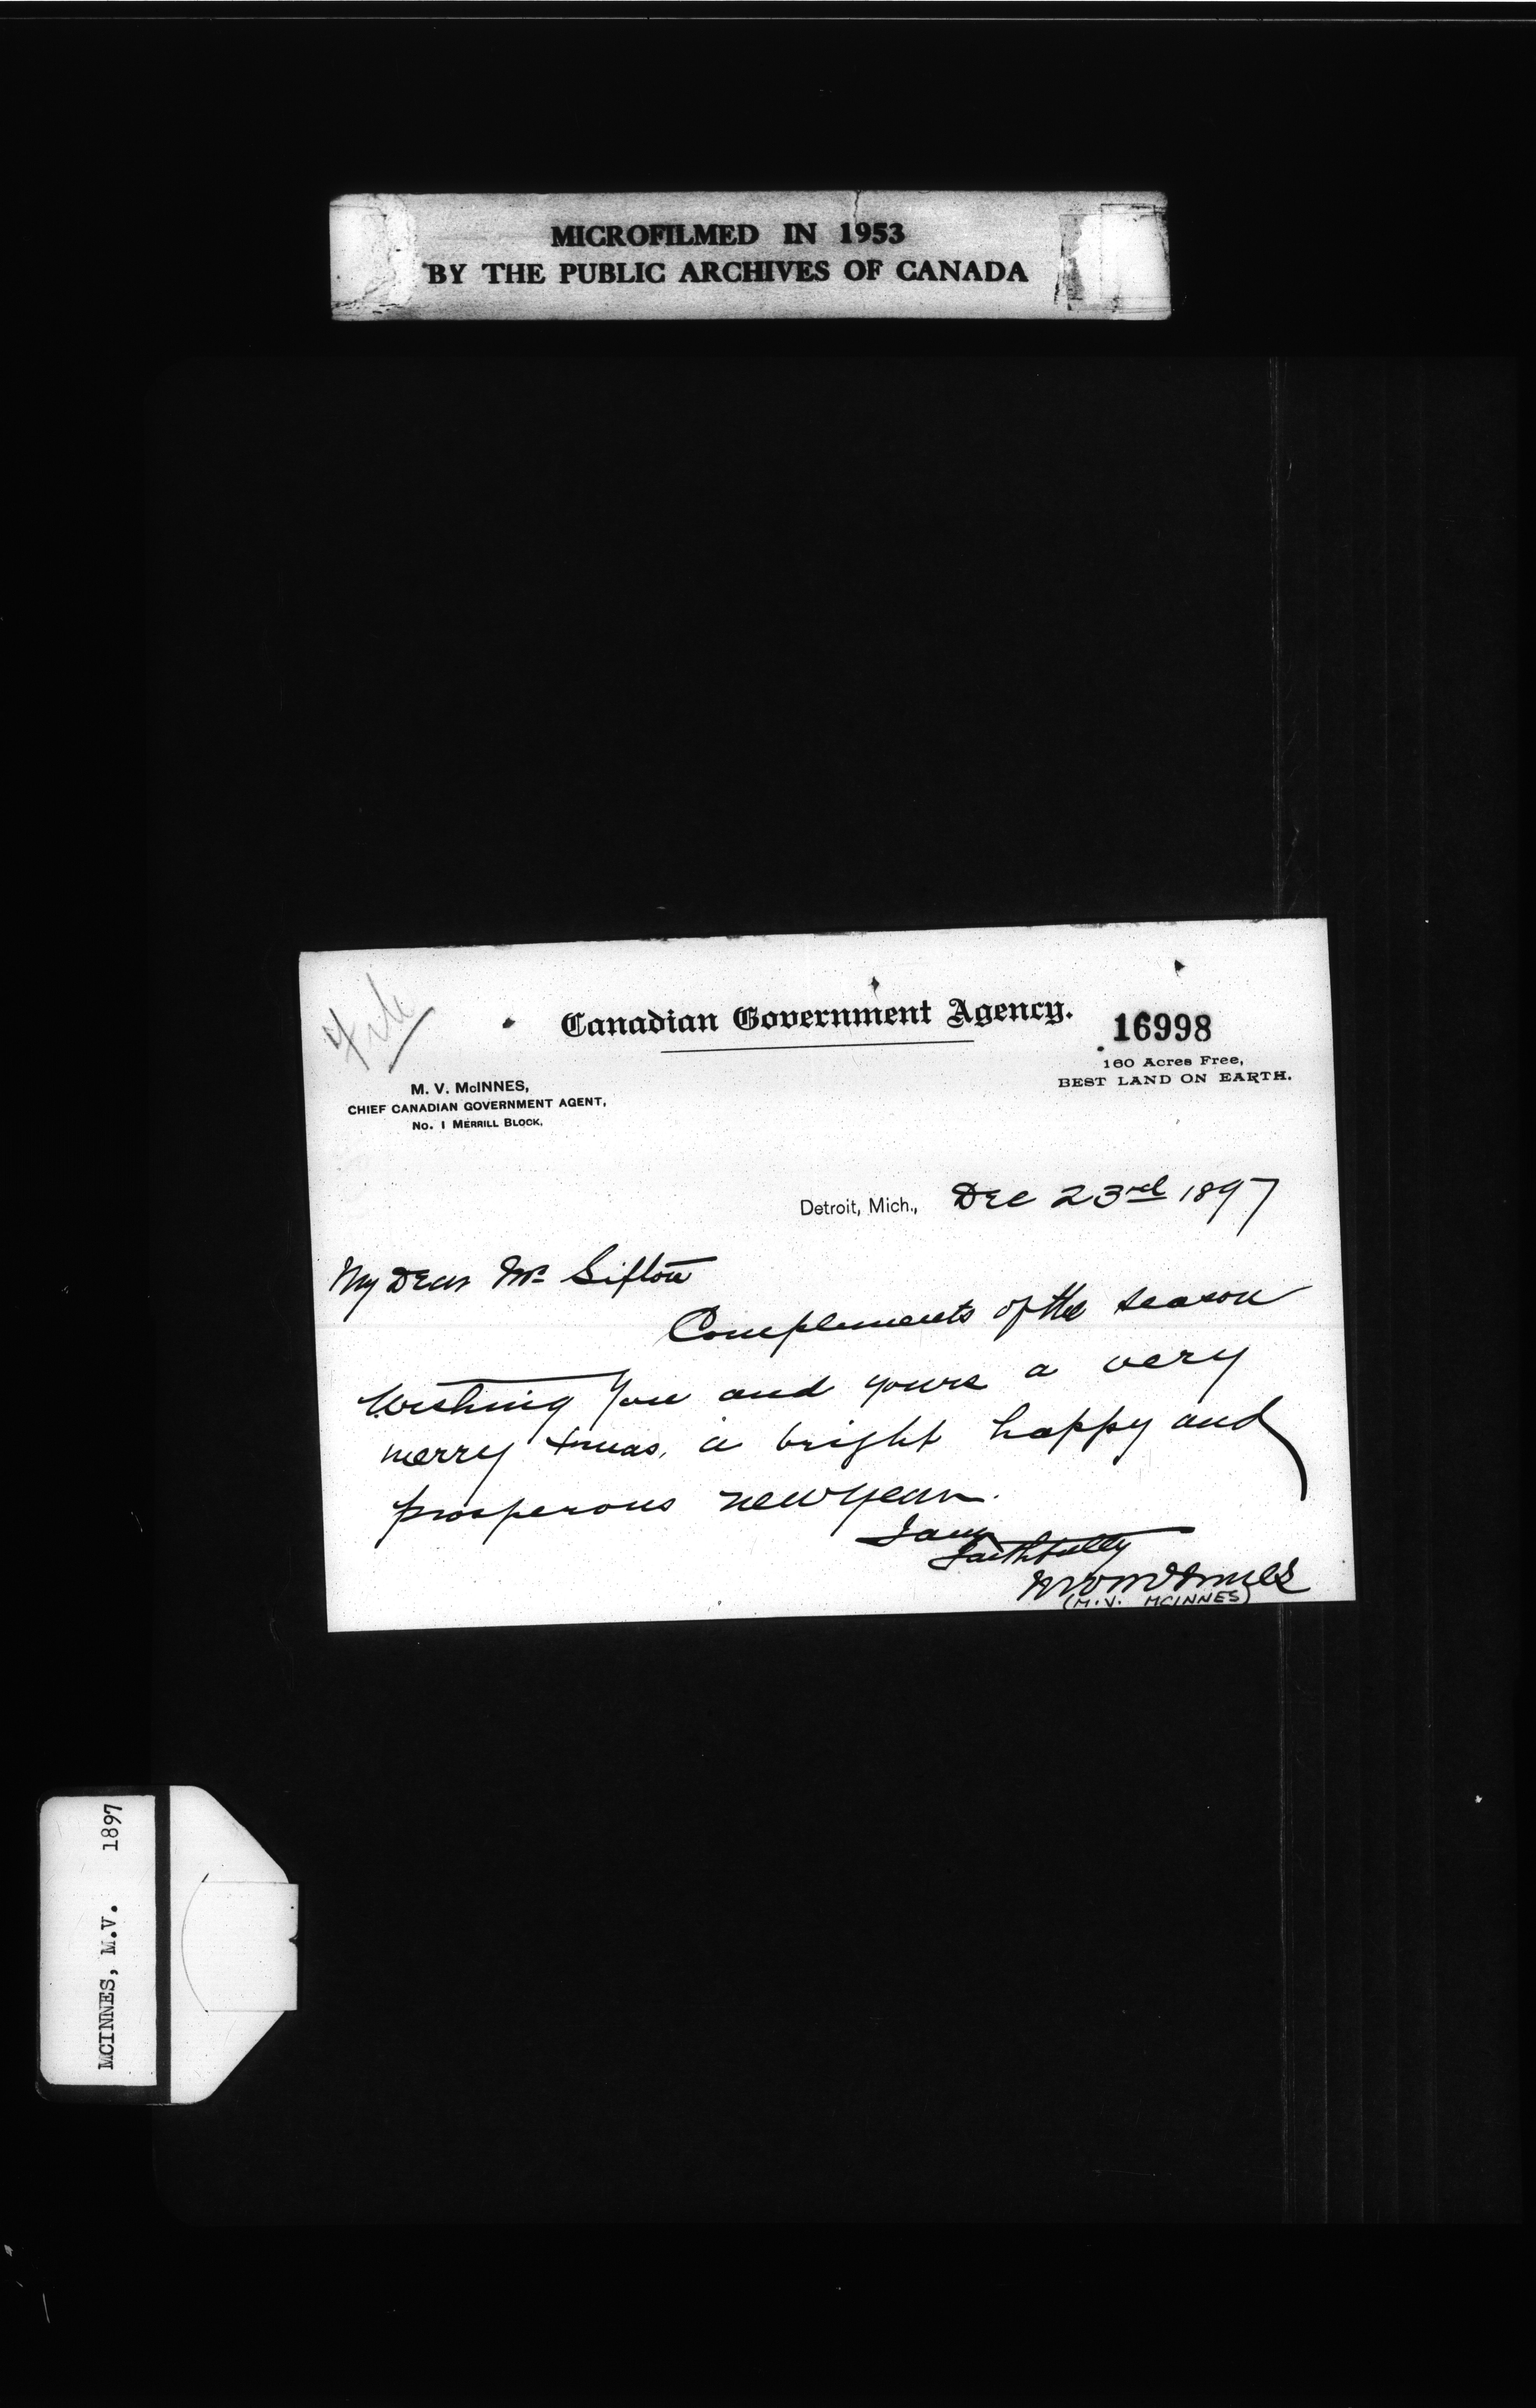 MICROFILMED IN 1953
BY THE PUBLIC ARCHIVES OF CANADA
File
Canadian Government Agency.
16998
160 Acres Free,
BEST LAND ON EARTH.
M. V. McINNES,
CHIEF CANADIAN GOVERNMENT AGENT,
No. 1 MERRILL BLOCK,
Detroit, Mich., Dec 23rd 1897
My Dear Mr Sifton
Complements of the season
Wishing You and yours a very
merry Xmas, a bright happy and
prosperous new year.
I am
Faithfully
M V McInnes
(M.V. MCINNES)
MCINNES, M.V. 1897